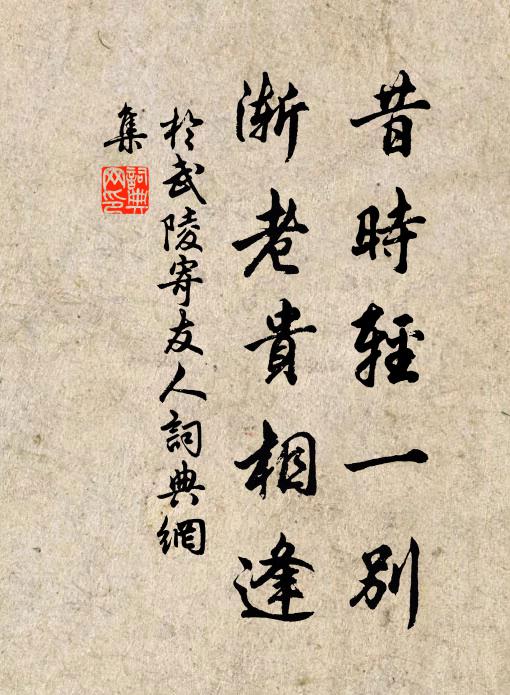 昔時輕一別
漸老貴相逢
於武陵寄友人詞典網
集
詞典
网印